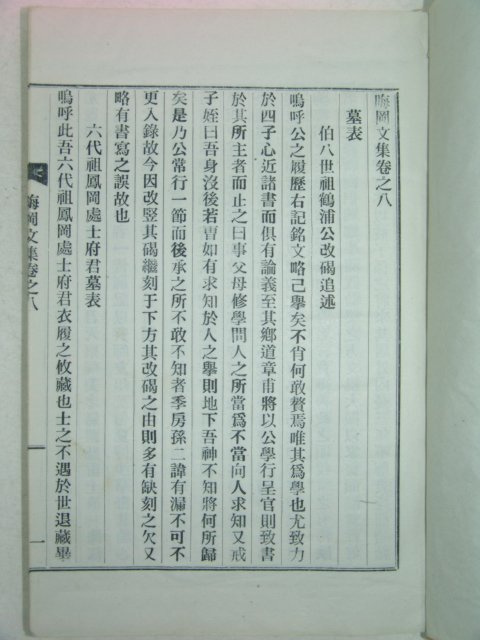 晦岡文集卷之八
墓表
伯八世祖鶴浦公改碣追述
嗚呼公之履歷右記銘文略已擧矣不肖何敢贅焉唯其爲學也尤致力
於四子心近諸書而俱有論義至其鄕道章甫將以公學行呈官則致書
於其所主者而止之曰事父母修學問人之所當爲不當向人求知又戒
子姪曰吾身沒後若曺如有求知於人之擧則地下吾神不知將何所歸
矣是乃公常行一節而後承之所不敢不知者季房孫二諱有漏不可不
更入錄故今因改竪其碣繼刻于下方其改碣之由則多有缺刻之欠又
略有書寫之誤故也
六代祖鳳岡處士府君墓表
嗚呼此吾六代祖鳳岡處士府君衣履之攸藏也士之不遇於世退藏畢
晦岡文集卷之八
一